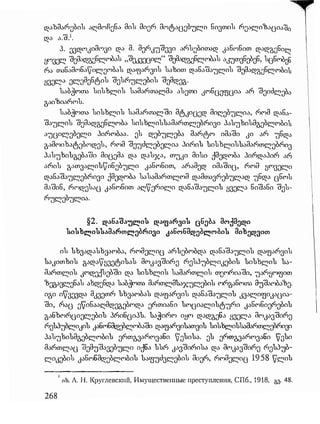 დახმარების აღმოჩენა მის მიერ მოტაცებული ნივთის რეალიზაციაში
და ა.შ.¹.
3. ევდოკიმოვი და მ. მერკუშევი არსებითად კანონით დადგენილ
ყოველ შემადგენლობას „შეკვეცილ“ შემადგენლობას აკუთვნებენ, სცნობენ
რა თანამონაწილეობას დაფარვის სახით დანაშაულის შემადგენლობის
ყველა ელემენტის შესრულების შემდეგ.
საბჭოთა სისხლის სამართალმა ასეთი კონცეფცია არ შეიძლება
გაიზიაროს.
საბჭოთა სისხლის სამართალში მტკიცედ მიღებულია, რომ დანა-
შაულის შემადგენლობა სისხლისსამართლებრივი პასუხისმგებლობის
აუცილებელი პირობაა. ეს დებულება მარტო იმაში კი არ უნდა
გამოიხატებოდეს, რომ შეუძლებელია პირის სისხლისსამართლებრივ
პასუხისგებაში მიცემა და დასჯა, თუკი მისი ქმედობა პირდაპირ არ
არის გათვალისწინებული კანონით, არამედ იმაშიც, რომ ყოველი
დანაშაულებრივი ქმედობა სასამართლომ დამთავრებულად უნდა ცნოს
მაშინ, როდესაც კანონით აღწერილი დანაშაულის ყველა ნიშანი შეს-
რულებულია.
§2. დანაშაულის დაფარვის ცნება მოქმედი
სისხლისსამართლებრივი კანონმდებლობის მიხედვით
ის სხვადასხვაობა, რომელიც არსებობდა დანაშაულის დაფარვის
საკითხის გადაწყვეტისას მოკავშირე რესპუბლიკების სისხლის სა-
მართლის კოდექსებში და სისხლის სამართლის თეორიაში, უარყოფით
ზეგავლენას ახდენდა საბჭოთა მართლმსაჯულების ორგანოთა მუშაობაზე.
იგი იწვევდა მკვეთრ სხვაობას დაფარვის დანაშაულის კვალიფიკაცია-
ში, რაც ეწინააღმდეგებოდა ერთიანი სოციალისტური კანონიერების
განხორციელების პრინციპს. საჭირო იყო დადგენა ყველა მოკავშირე
რესპუბლიკის კანონმდებლობაში დაფარვისათვის სისხლისსამართლებრივი
პასუხისმგებლობის ერთგვაროვანი წესისა. ეს ერთგვაროვანი წესი
მართლაც შემუშავებული იქნა სსრ კავშირისა და მოკავშირე რესპუბ-
ლიკების კანონმდებლობის საფუძვლების მიერ, რომელიც 1958 წლის
¹ იხ. Л. Н. Круглевский, Имущественные преступления, СПб., 1918, გვ. 48.
268